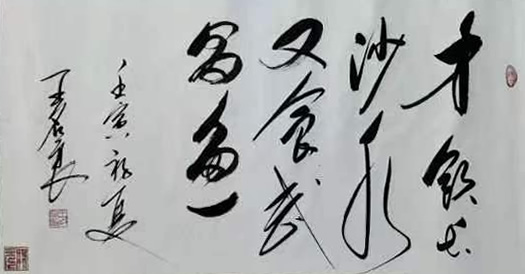 才饮长
沙水
又食武
昌鱼
壬寅初夏